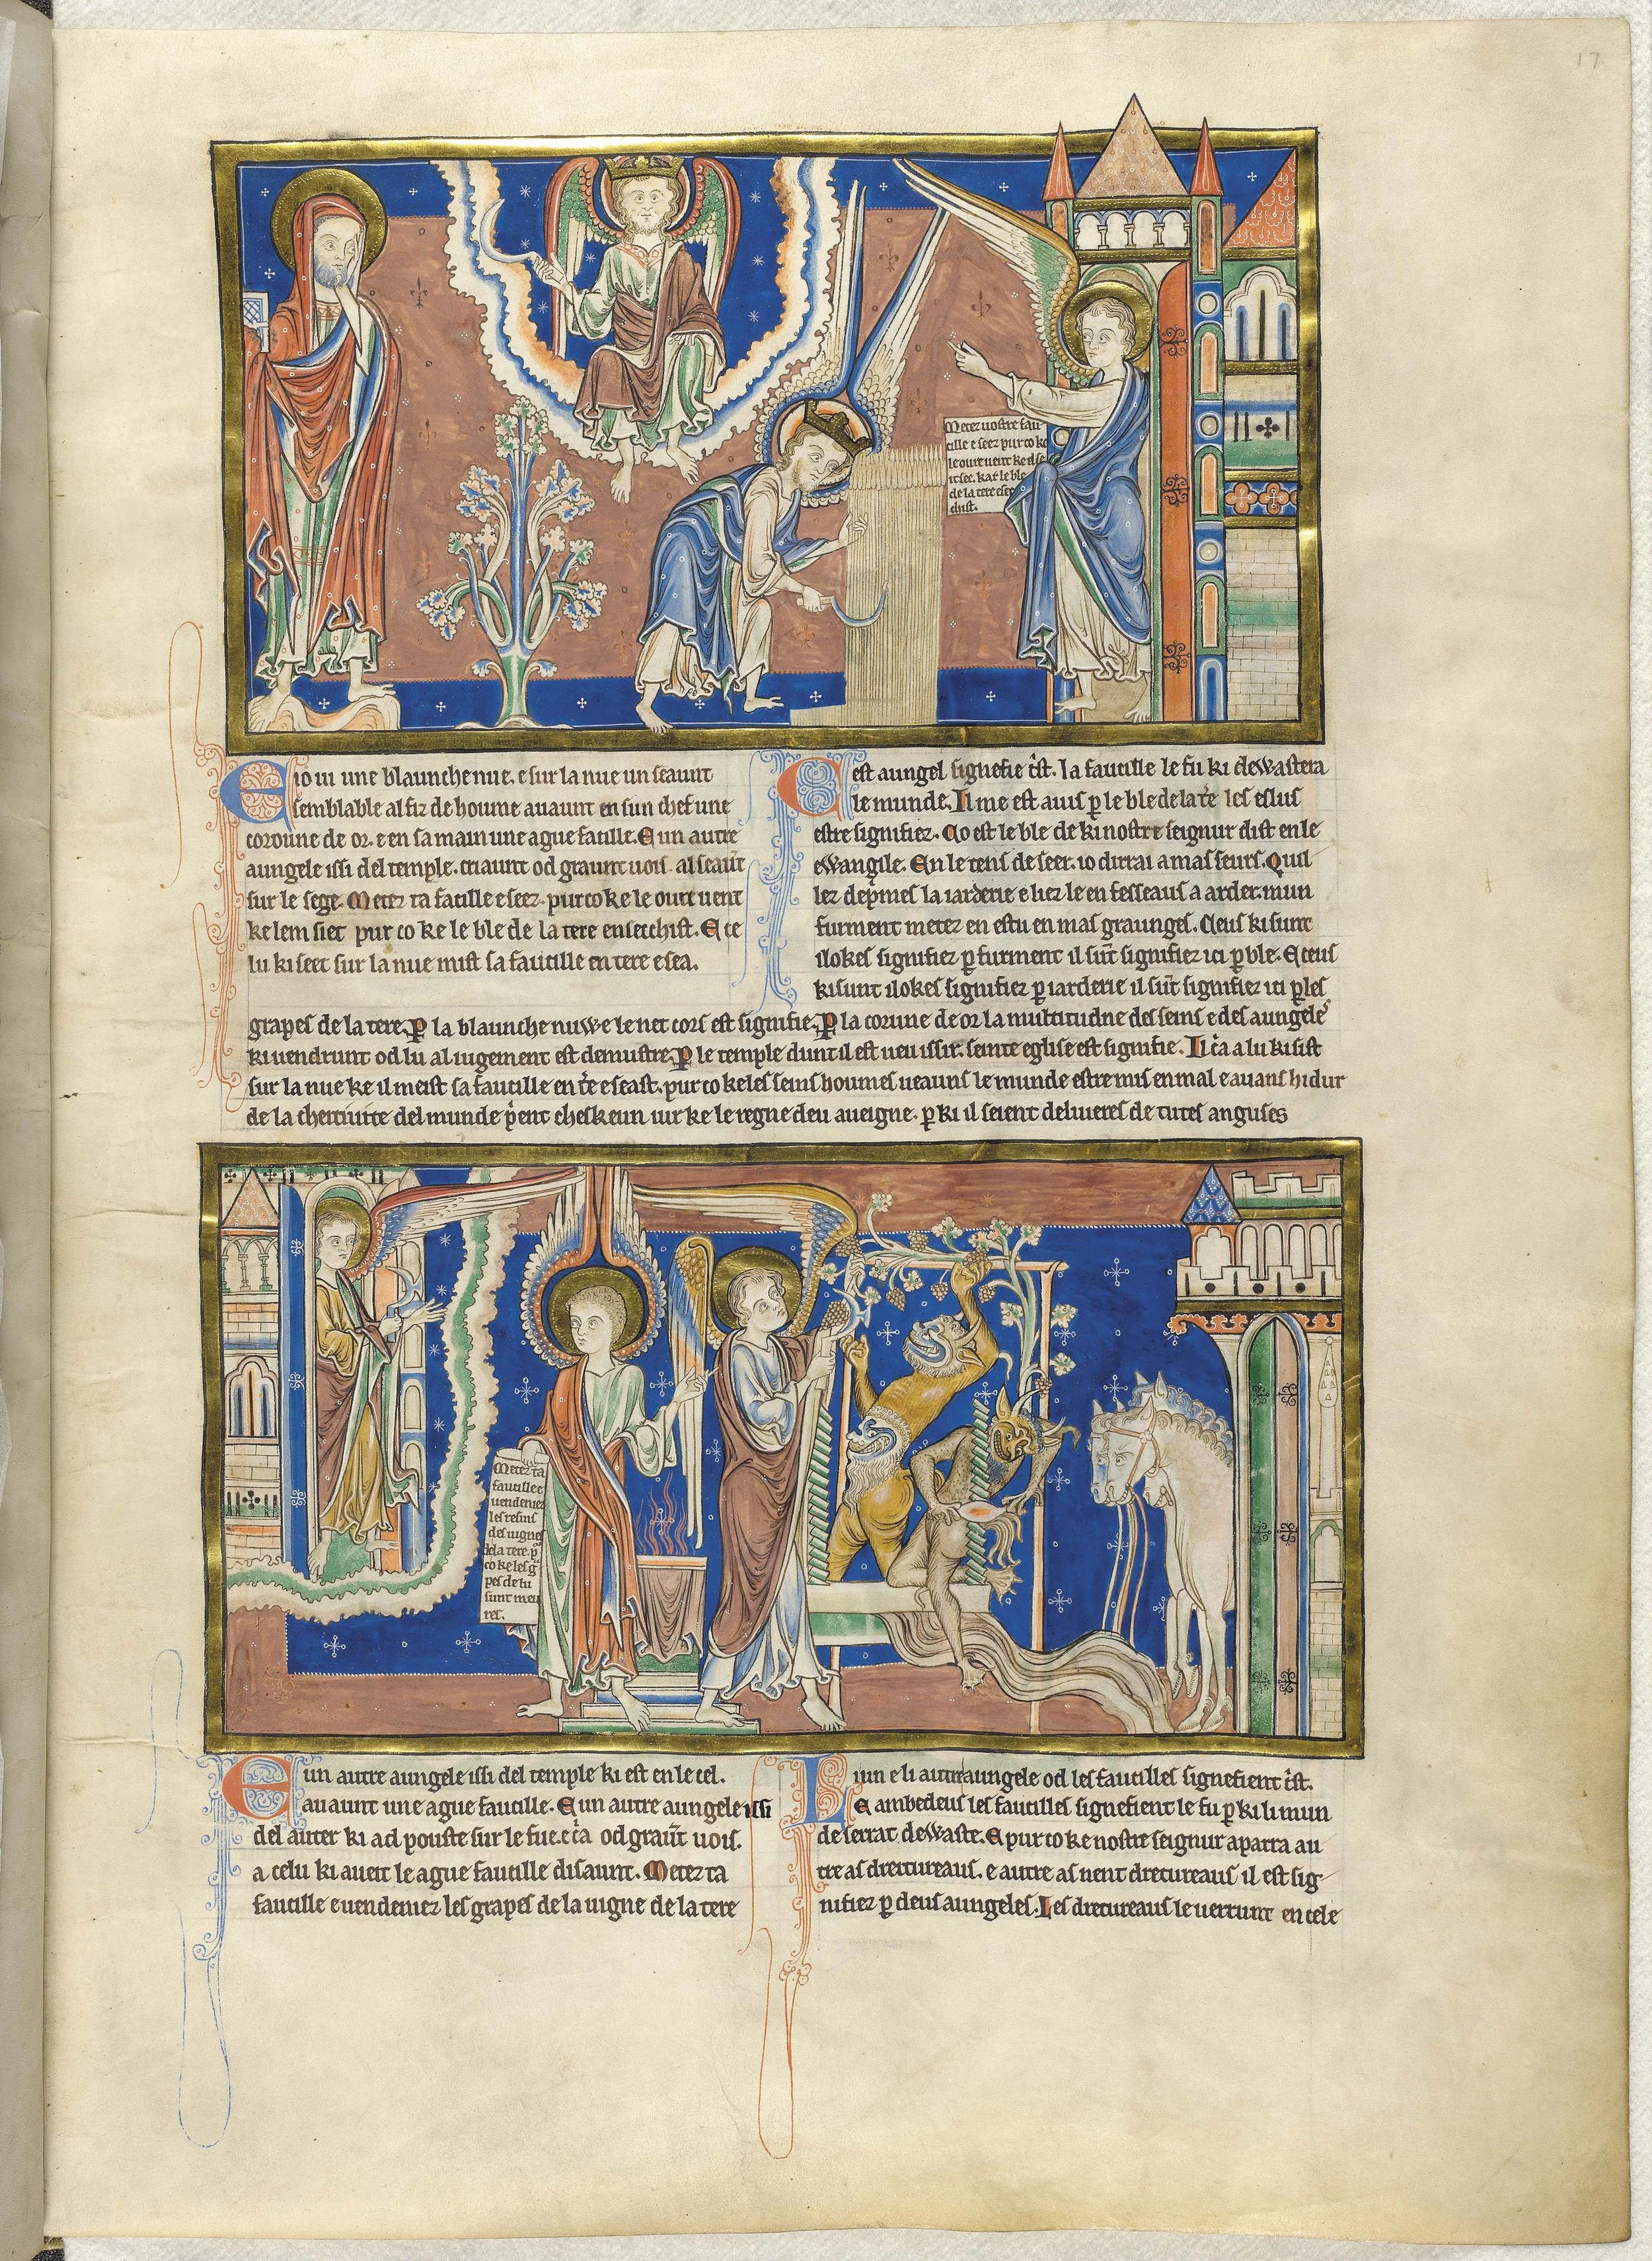 17
Metez uostre fau
cille e seez pur co ke
le oure uent ke il se
it see. kar le ble
de la tere ese
chist.
E io ui une blaunche nue. e sur la nue un seaunt
semblable al fiz de houme auaunt en sun chef une
coroune de or. e en sa main une ague faucille. E un autre
aungele issi del temple. criaunt od graunt uois al seaūt
sur le sege. Metez ta faucille e seez. pur co ke le oure uent
ke lem siet pur co ke le ble de la tere ensecchist. E ce
lu ki seet sur la nue mist sa faucille en tere e sea.
Cest aungel signefie c̄st. la faucille le fu ki dewastera
le munde. Il me est auis p̱ le ble de la t̄e les eslus
estre signifiez. Co est le ble de ki nostre seignur dist en le
ewangile. En le tens de seer. io dirrai a mas seurs. Quil
lez dep̱mes la iarderie e liez le en fesseaus a arder. mun
furment metez en estu en mas graunges. Ceus ki sunt
ilokes signifiez p̱ furment il sūt signifiez ici p̱ ble. E ceus
ki sunt ilokes signifiez p̱ iarderie il sūt signifiez ici p̱ les
grapes de la tere. P̱ la blaunche nuwe le net cors est signifie. P̱ la corune de or la multitudne des seins e des aungeles
ki uendrunt od lu al iugement est demustre. P̱ le temple dunt il est ueu issir. seinte eglise est signifie. Il c̄a a lu ki sist
sur la nue ke il meist sa faucille en t̄e e seast. pur co ke les seins houmes ueauns le munde estre mis en mal e auans hidur
de la cheitiuite del munde p̄ent cheskeun iur ke le regne deu aueigne. p̱ ki il seient deliueres de tutes anguses
Metez ta
faucille e
uendenies
les resins
des uignes
de la tere. p̱
co ke les g̃
pes de lu
sunt meu
res.
E un autre aungele issi del temple ki est en le cel.
auaunt une ague faucille. E un autre aungele issi
del auter ki ad pouste sur le fu e c̄a od graūt uois.
a celu ki aueit le ague faucille disaunt. Metez ta
faucille e uendeniez les grapes de la uigne de la tere
Li un e li autre aungele od les faucilles signefient c̄st.
E ambedeus les faucilles signefient le fu p̱ ki li mun
de serrat dewaste. E pur co ke nostre seignur aparra au
tre as dreitureaus. e autre as nent dreitureaus il est sig
nifiez p̱ deus aungeles. Les dreitureaus le uerrunt en cele